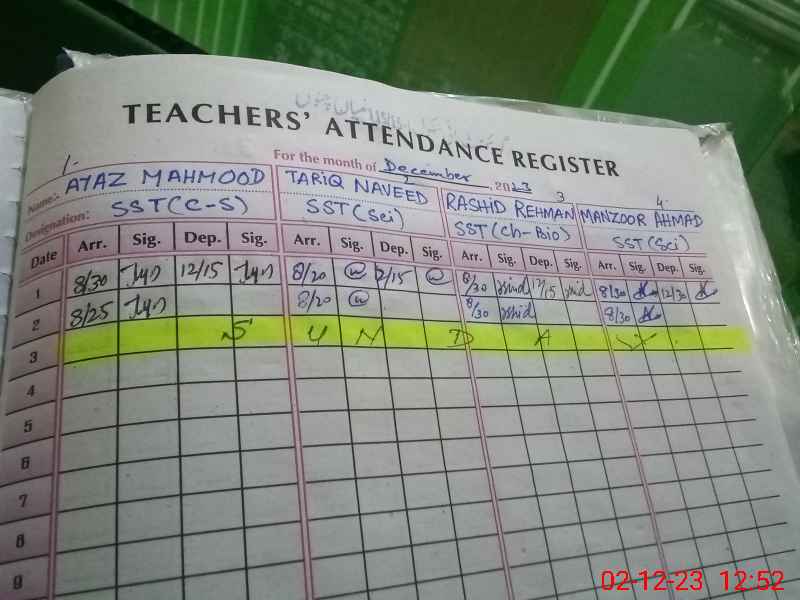 TEACHERS' ATTENDANCE REGISTER
For the month of December, 2023
1- 2 3 4-
Name:- AYAZ MAHMOOD TARIQ NAVEED RASHID REHMAN MANZOOR AHMAD
Designation: SST(C-S) SST(Sci) SST(Ch-Bio) SST(Sci)
Date Arr. Sig. Dep. Sig. Arr. Sig. Dep. Sig. Arr. Sig. Dep. Sig. Arr. Sig. Dep. Sig.
1 8/30 12/15 8/20 12/15 8/30 12/15 8/30 12/30
2 8/25 8/20 8/30 8/30
3 S U N D A Y
4
5
6
7
8
9
02-12-23 12:52